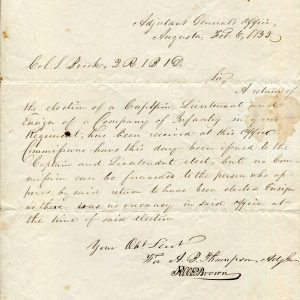 Adjutant Generals Office,
Augusta, Feb. 6, 1835
Col. S. Brooks, 2 R. 1 B. 1 D.
Sir,
A return of
the election of a Captain, Lieutenant and
Ensign of a Company of Infantry in your
Regiment, has been received at this office
Commissions have this day been issued to the
Captain and Lieutenant elect, but no Com
mission can be forwarded to the person who ap
pears by said return to have been elected Ensign
as there was no vacancy in said office at
the time of said election
Your Obt Servt
For A. B. Thompson, Adj
Brown